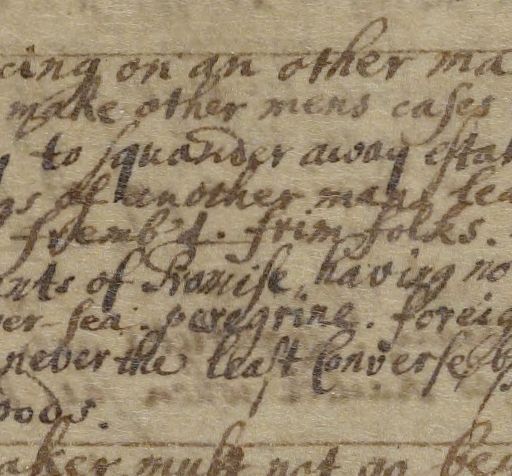 cing on an other ma
make other mens cases
to squander away estat
gs of another mans lea
fremb'd. frim-folks.
nts of Promise, having no
er-sea. peregrine. foreig
never the least Converse
oods.
aker must not go bea